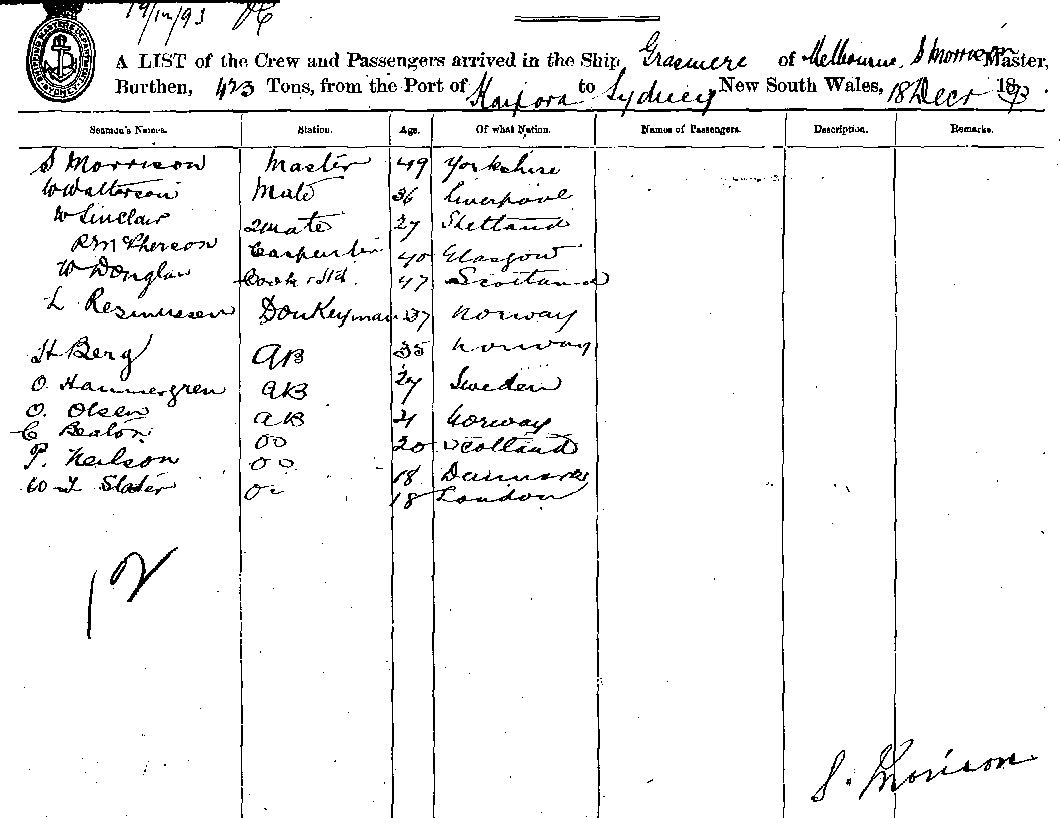 19/12/93
A LIST of the Crew and Passengers arrived in the Ship Grasmere of Melbourne, S Morrison Master,
Burthen, 423 Tons, from the Port of Kaipara to Sydney New South Wales, 18 Decr 1893
Seamen's Names. Station. Age. Of what Nation. Names of Passengers. Description. Remarks.
S Morrison Master 49 Yorkshire
W Watterson Mate 36 Liverpool
W Sinclair 2 Mate 27 Shetland
R McPherson Carpenter 40 Glasgow
W Douglas Cook & Std. 47 Scotland
L Rasmussen Donkeyman 37 Norway
H Berg AB 35 Norway
O. Hammergren AB 27 Sweden
O. Olsen AB 21 Norway
C Beaton OS 20 Scotland
P. Neilson OS 18 Denmark
W Slater OS 18 London
12
S. Morison